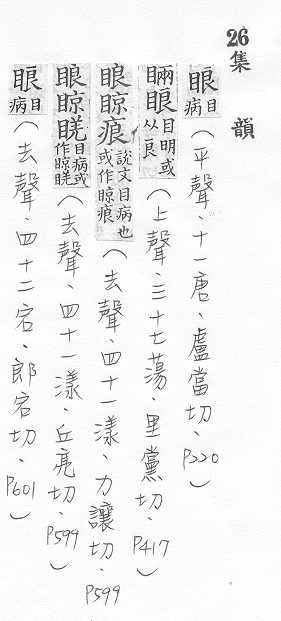 26集韻
眼目病（平聲、十一唐、盧當切、P220）
䀶眼目明或从良（上聲、三十七蕩、里黨切、P417）
眼䁁痕說文目病也或作䁁痕（去聲、四十一漾、力讓切、P599）
眼䁁䀯目病或作䁁䀯（去聲、四十一漾、丘亮切、P599）
眼目病（去聲、四十二宕、郎宕切、P601）